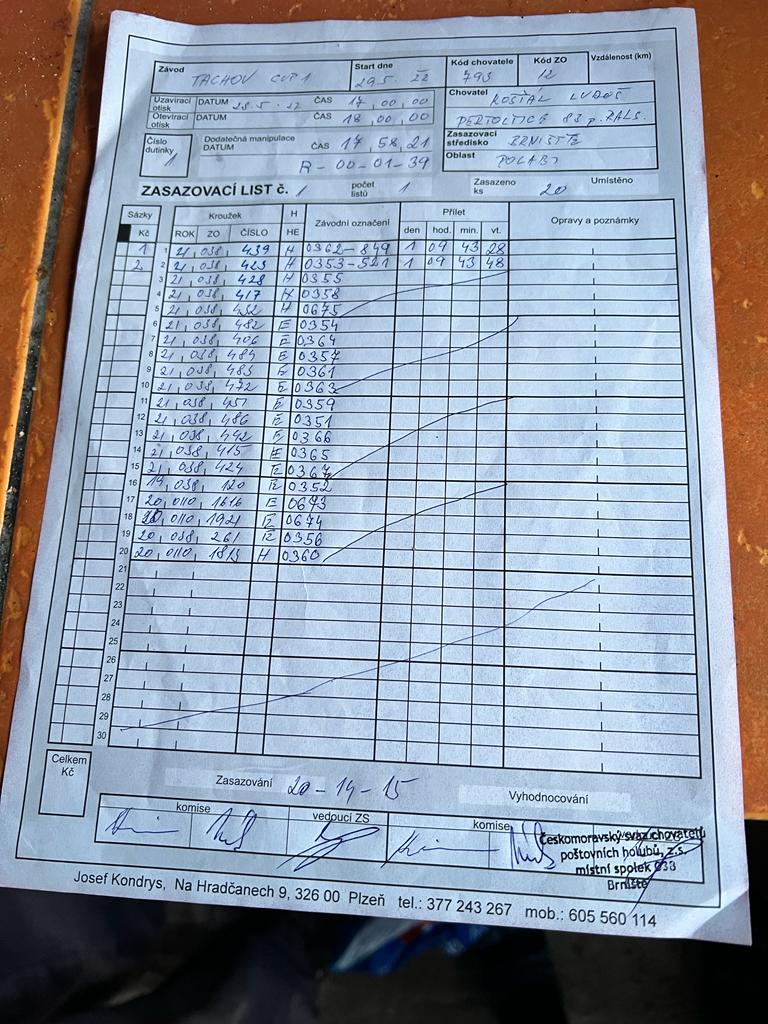 Závod TACHOV CUP 1 Start dne 29.5. 22 Kód chovatele 793 Kód ZO 12 Vzdálenost (km)
Uzavírací otisk DATUM 28.5. 22 ČAS 17,00,00 Chovatel KOŠŤÁL LUBOŠ
Otevírací otisk DATUM ČAS 18,00,00 PERTOLTICE 83 p. RALS.
Číslo dutinky 1 Dodatečná manipulace DATUM ČAS 17,58,21 Zasazovací středisko BRNIŠTĚ
R-00-01-39 Oblast POLABÍ
ZASAZOVACÍ LIST č. 1 počet listů 1 Zasazeno ks 20 Umístěno
Sázky Kroužek H Závodní označení Přílet Opravy a poznámky
Kč ROK ZO ČÍSLO HE den hod. min. vt.
1 1 21 038 439 H 0362-849 1 09 43 28
2 2 21 038 423 H 0353-521 1 09 43 48
3 21 038 428 H 0355
4 21 038 417 H 0358
5 21 038 432 H 0675
6 21 038 482 E 0354
7 21 038 406 E 0364
8 21 038 484 E 0357
9 21 038 483 E 0361
10 21 038 472 E 0363
11 21 038 451 E 0359
12 21 038 486 E 0351
13 21 038 442 E 0366
14 21 038 415 E 0365
15 21 038 424 E 0367
16 19 038 120 E 0352
17 20 0110 1616 E 0673
18 20 0110 1921 E 0674
19 20 038 261 E 0356
20 20 0110 1813 H 0360
21
22
23
24
25
26
27
28
29
30
Celkem Kč
Zasazování 20-14-15 Vyhodnocování
komise vedoucí ZS komise
Českomoravský svaz chovatelů
poštovních holubů, z.s.
místní spolek 038
Brniště
Josef Kondrys, Na Hradčanech 9, 326 00 Plzeň tel.: 377 243 267 mob.: 605 560 114